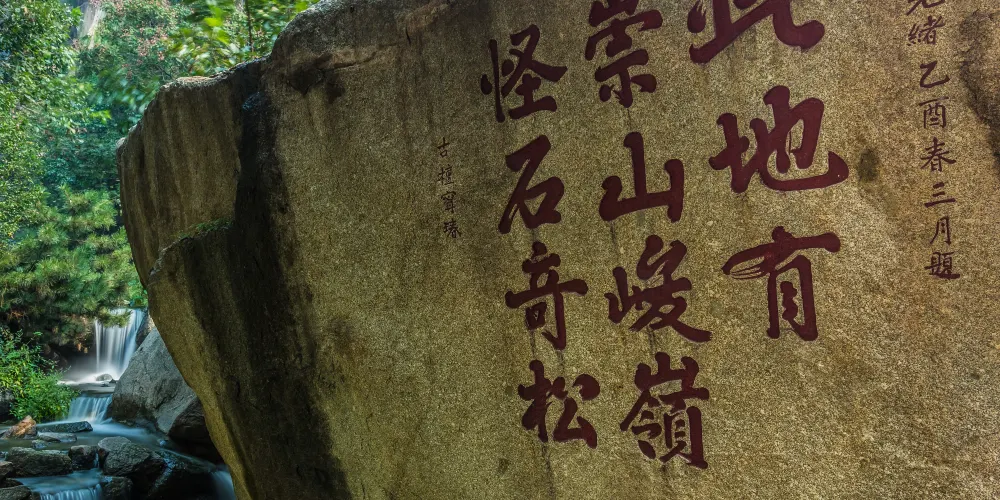 光緒乙酉春三月題
此地有
崇山峻嶺
怪石奇松
古檀寗琢